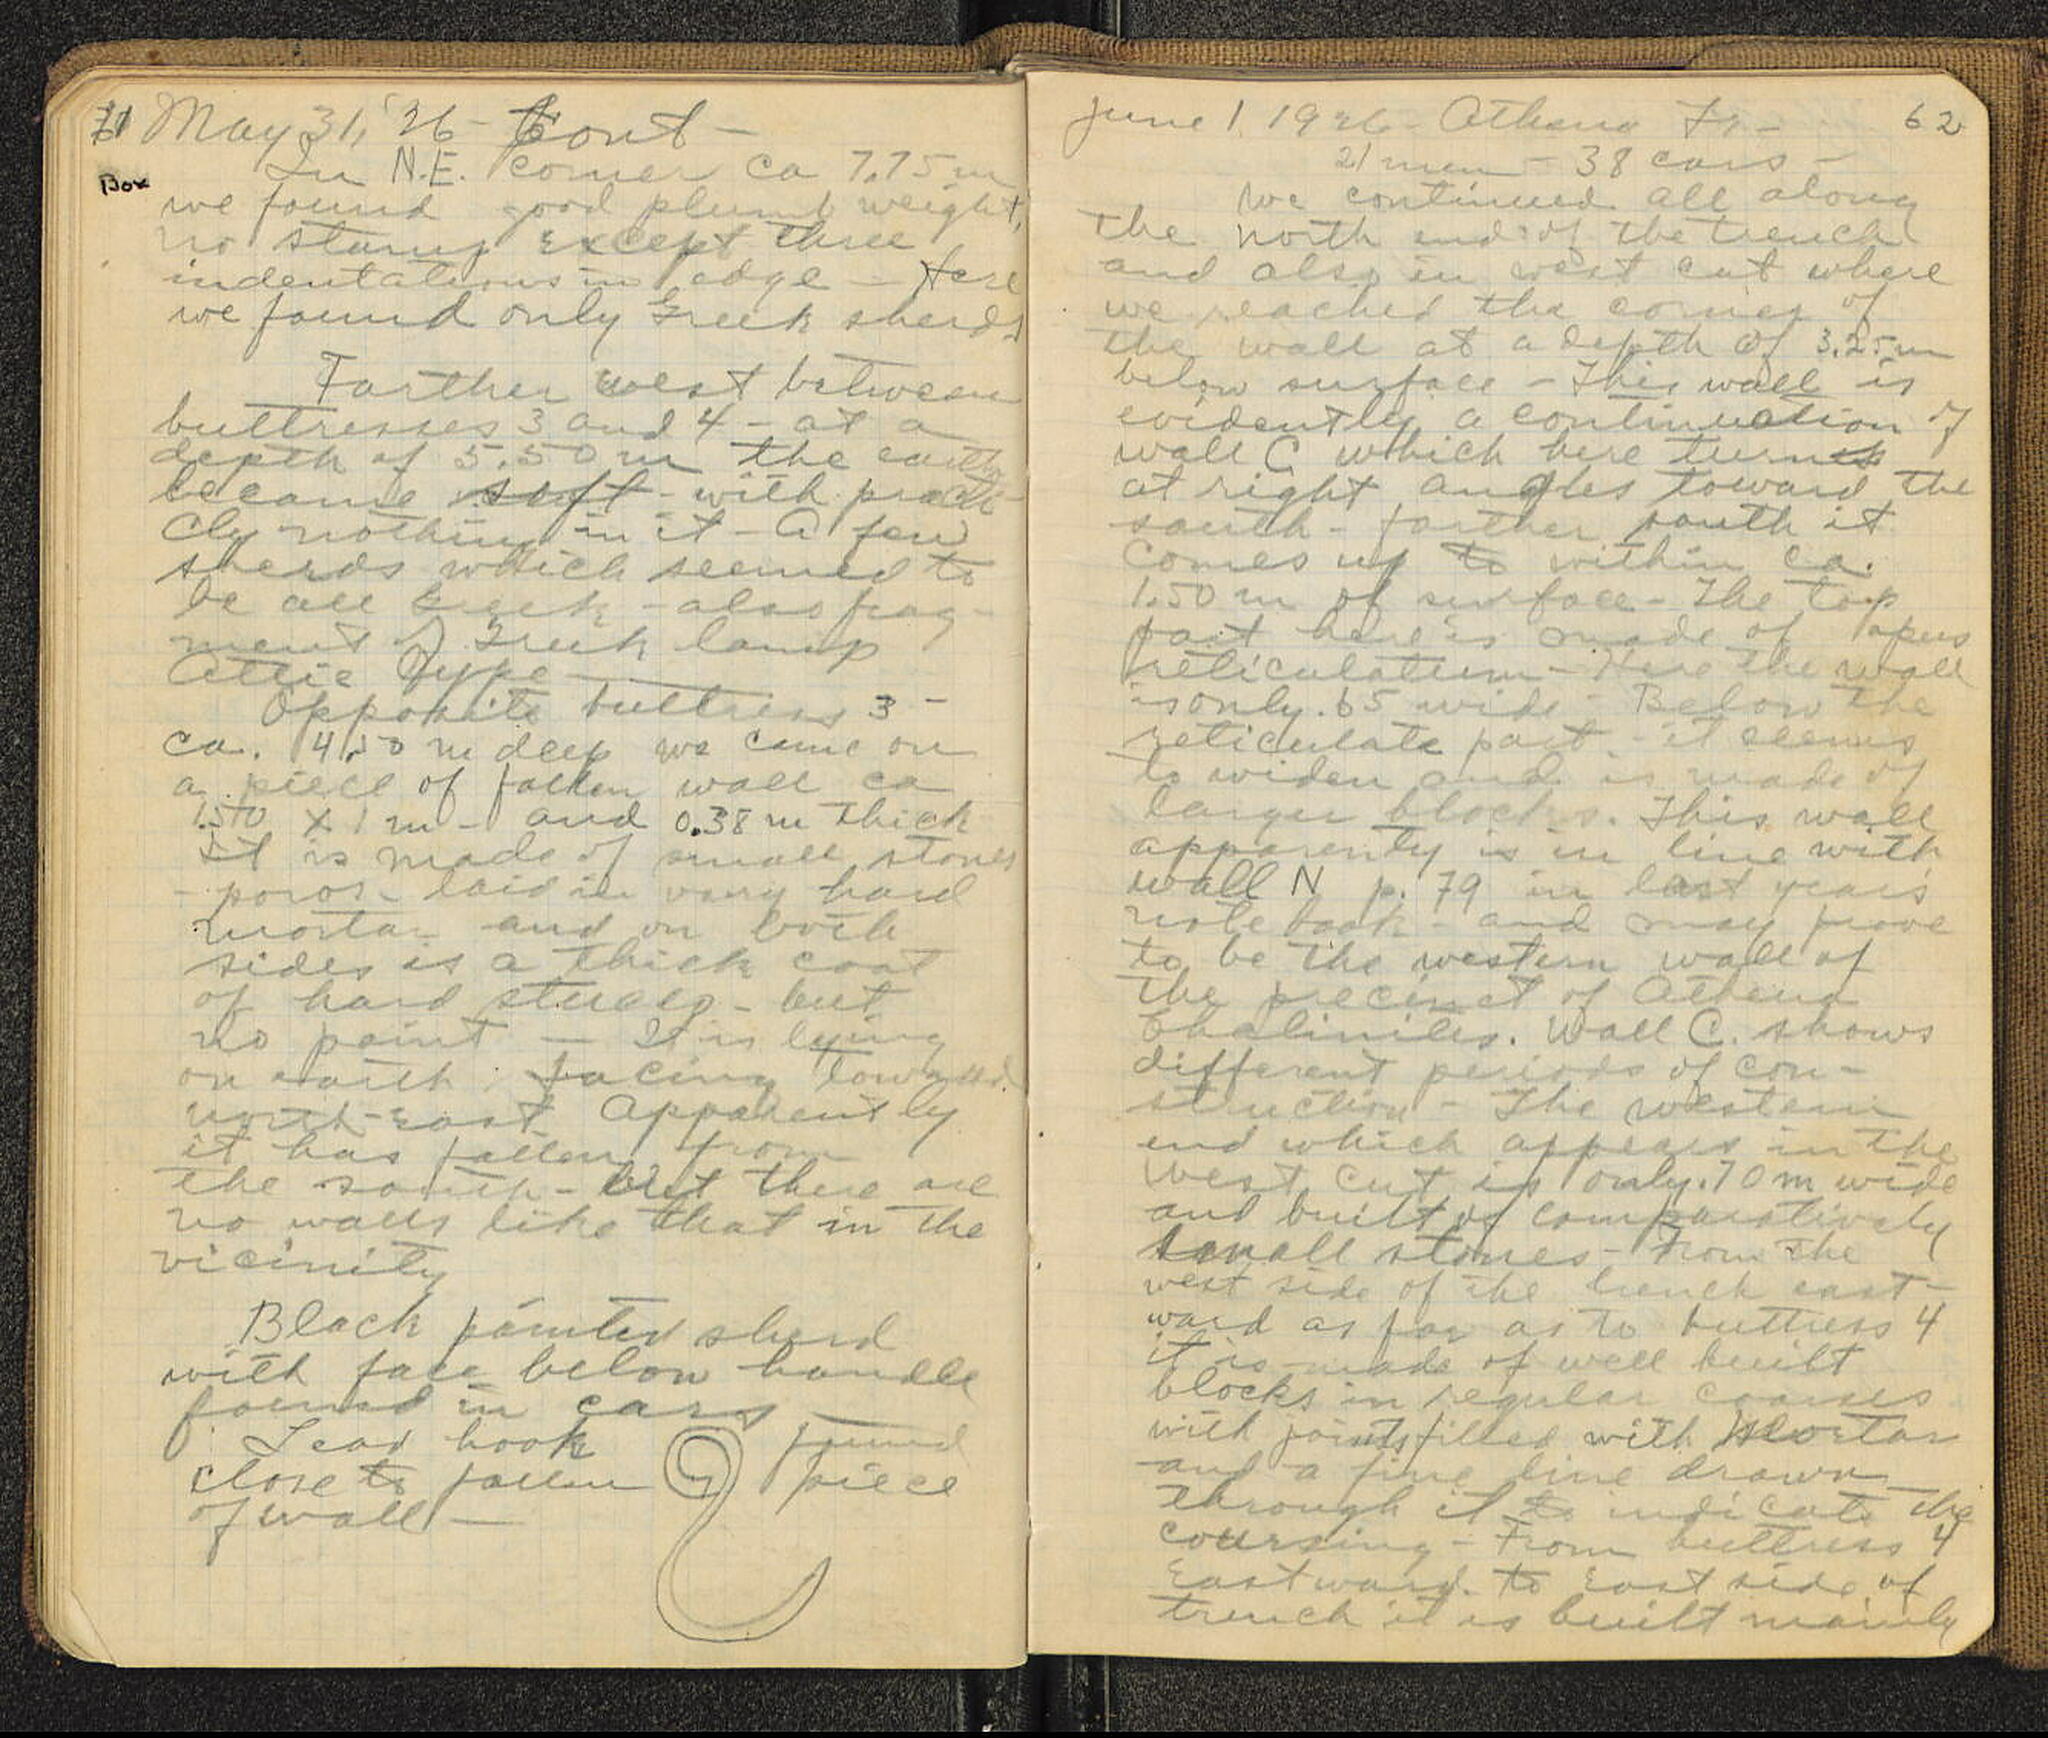 61 May 31, '26 - Cont -
Box
In N.E. corner ca 7.75 m
we found good plumb weight,
no stamp except three
indentations in edge - Here
we found only Greek sherds
Farther west between
buttresses 3 and 4 - at a
depth of 5.50 m the earth
became soft - with practi-
cly nothing in it - A few
sherds which seemed to
be all Greek - also frag-
ment of Greek lamp
Attic Type -
Opposite buttress 3 -
ca. 4.50 m deep we came on
a piece of fallen wall ca
1.50 x 1 m - and 0.38 m thick
It is made of small stones
- poros - laid in very hard
mortar and on both
sides is a thick coat
of hard stucco - but
no paint - It is lying
on earth facing toward
north-east Apparently
it has fallen from
the south - but there are
no walls like that in the
vicinity
Black painted sherd
with face below handle
found in cars -
Lead hook found
close to fallen piece
of wall -
June 1 1926 - Athena Tr - 62
21 men - 38 cars -
We continued all along
the north end of the trench
and also in west cut where
we reached the corner of
the wall at a depth of 3.25 m
below surface - This wall is
evidently a continuation of
wall C which here turns
at right angles toward the
south - farther south it
comes up to within ca.
1.50 m of surface - The top
part here is made of opus
reticulatum - Here the wall
is only .65 wide - Below the
reticulate part - it seems
to widen and is made of
larger blocks. This wall
apparently is in line with
wall N p. 79 in last years
note book - and may prove
to be the western wall of
the precinct of Athena
Chalinitis. Wall C. shows
different periods of con-
struction - The western
end which appears in the
west cut is only .70 m wide
and built of comparatively
small stones - From the
west side of the trench east-
ward as far as to buttress 4
it is made of well built
blocks in regular courses
with joints filled with mortar
and a fine line drawn
through it to indicate the
coursing - From buttress 4
Eastward to East side of
trench it is built mainly